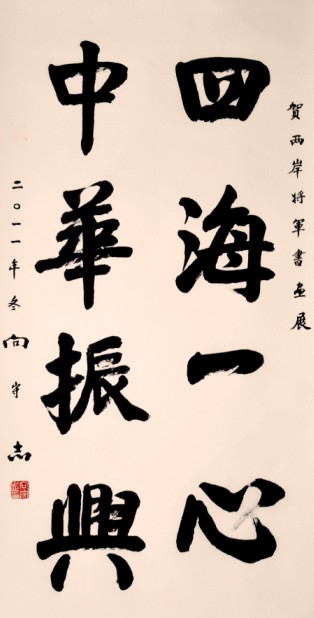 賀两岸将軍書画展
四海一心
中華振興
二〇一一年冬 向守志